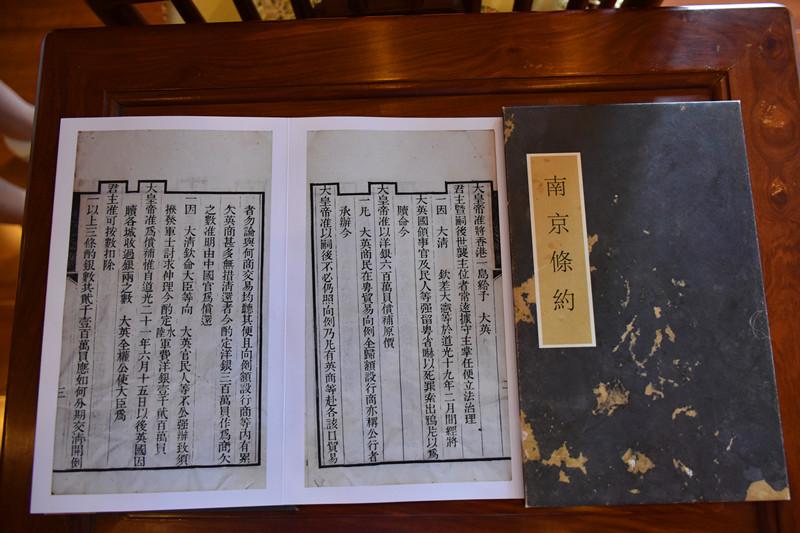 南京條約
大皇帝准將香港一島給予　大英
君主暨嗣後世襲主位者常遠據守主掌任便立法治理
一因　大清　欽差大憲等於道光十九年二月間經將
大英國領事官及民人等強留粵省嚇以死罪索出鴉片以為
贖命今
大皇帝准以洋銀六百萬員償補原價
一凡　大英商民在粵貿易向例全歸額設行商亦稱公行者
承辦今
大皇帝准以嗣後不必仍照向例乃凡有英商等赴各該口貿易
者勿論與何商交易均聽其便且向例額設行商等內有累
欠英商甚多無措清還者今酌定洋銀三百萬員作為商欠
之數准明由中國官為償還
一因　大清欽命大臣等向　大英官民人等不公強辦致須
撥發軍士討求伸理今酌定水陸軍費洋銀壹千貳百萬員
大皇帝准為償補惟自道光二十一年六月十五日以後英國因
贖各城收過銀兩之數　大英全權公使大臣為
君主准可按數扣除
一以上三條酌銀數共貳千壹百萬員應如何分期交清開列
三